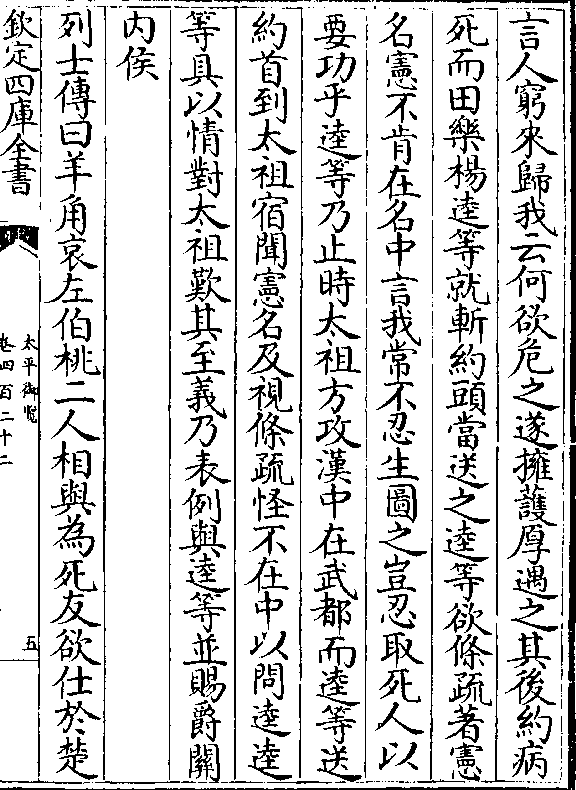 言人窮來歸我云何欲危之遂擁護厚遇之其後約病
死而田樂楊逵等就斬約頭當送之逵等欲條疏著憲
名憲不肯在名中言我常不忍生圖之豈忍取死人以
要功乎逵等乃止時太祖方攻漢中在武都而逵等送
約首到太祖宿聞憲名及視條疏怪不在中以問逵逵
等具以情對太祖歎其至義乃表例與逵等並賜爵關
内侯
列士傳曰羊角哀左伯桃二人相與為死友欲仕於楚
欽定四庫全書
太平御覧
卷四百二十二
五